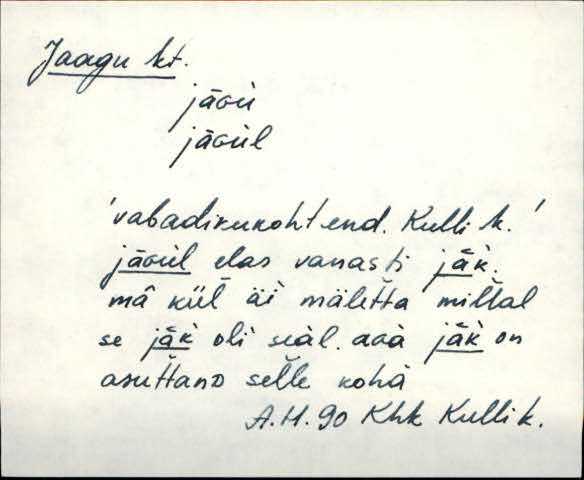 Jaagu kt.
jāGü
jāGül
'vabadikukoht end. Kulli k.'
jāGül elas vanasti jǟk̀.
mā kül äi mäletta miĺlal
se jǟk̀ oli seàl. aGà jǟk̀ on
asuttanD selle kohà
A.H. 90 Khk Kulli k.